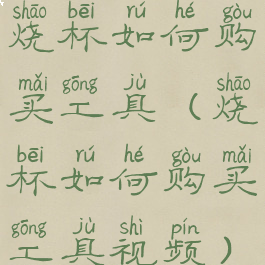 shāo bēi rú hé gòu
烧杯如何购
mǎi gōng jù shāo
买工具（烧
bēi rú hé gòu mǎi
杯如何购买
gōng jù shì pín
工具视频）